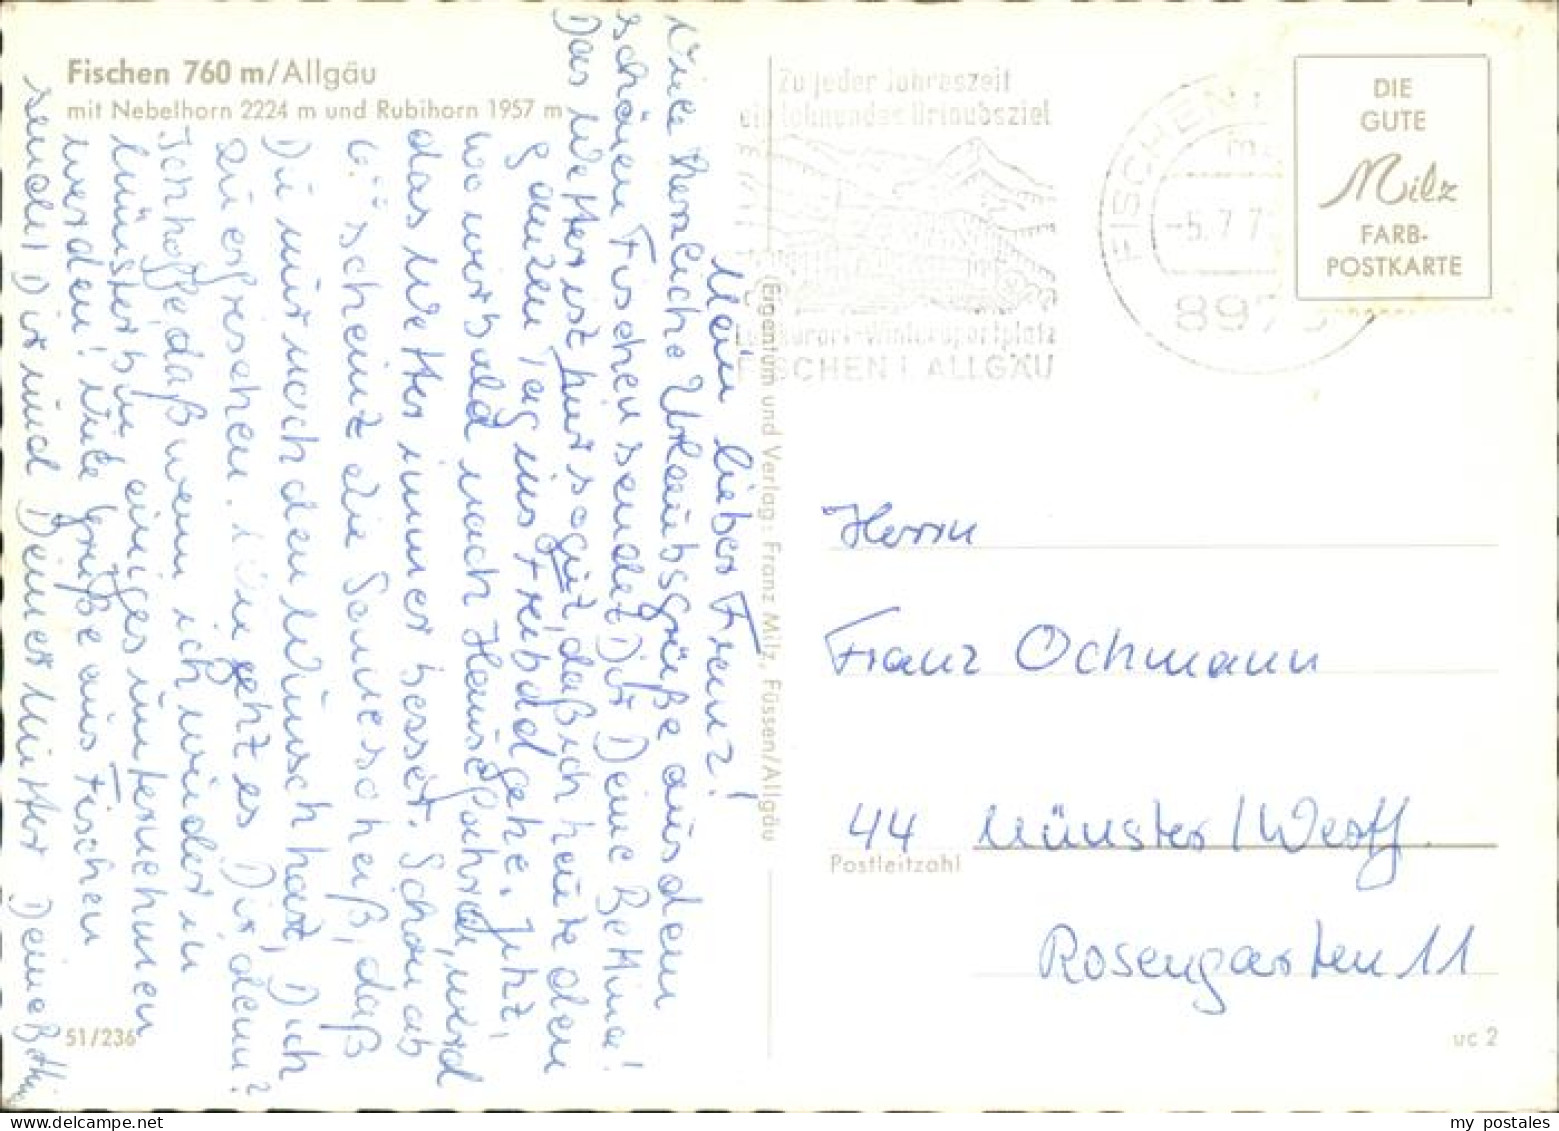 Fischen 760 m/Allgäu
mit Nebelhorn 2224 m und Rubihorn 1957 m
Mein lieber Franz!
Viele herzliche Urlaubsgrüße aus dem
schönen Fischen sendet Dir Deine Bettina!
Das Wetter ist hier so gut, daß ich heute den
ganzen Tag ins Freibad gehe. Jetzt,
wo wir bald nach Hause fahren, wird
das Wetter immer besser. Schon ab
6.°° scheint die Sonne so heiß, daß
Du nur noch den Wunsch hast, Dich
zu erfrischen. Wie geht es Dir denn?
Ich hoffe, daß wenn ich wieder in
Münster bin, einiges unternehmen
werden! Viele Grüße aus Fischen
sendet Dir und Deiner Mutter Deine Bettina
51/236
(Eigentum und Verlag: Franz Milz, Füssen/Allgäu
Zu jeder Jahreszeit
ein lohnendes Urlaubsziel
Luftkurort-Wintersportplatz
FISCHEN I. ALLGÄU
FISCHEN
-5.7.7
897
DIE
GUTE
Milz
FARB-
POSTKARTE
Herrn
Franz Ochmann
44 Münster/Westf.
Postleitzahl
Rosengarten 11
uc 2
my postales